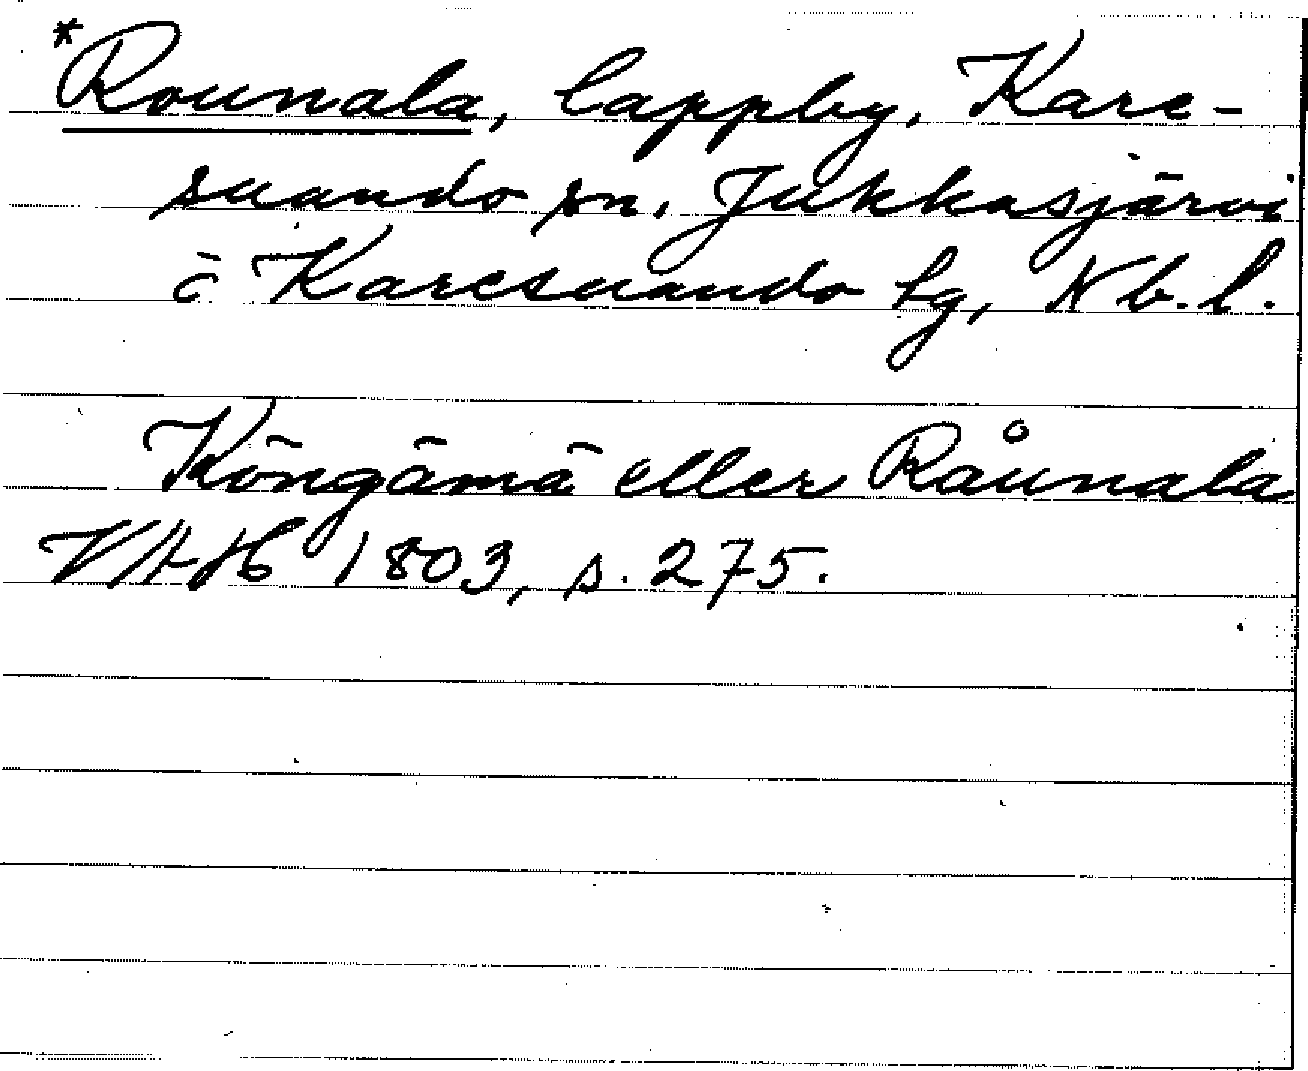 *Rounala, lappby, Kare-
suando sn. Jukkasjärvi
o Karesuando lg, Nb.l.
Köngämä eller Råunala
VAH 1803, s. 275.